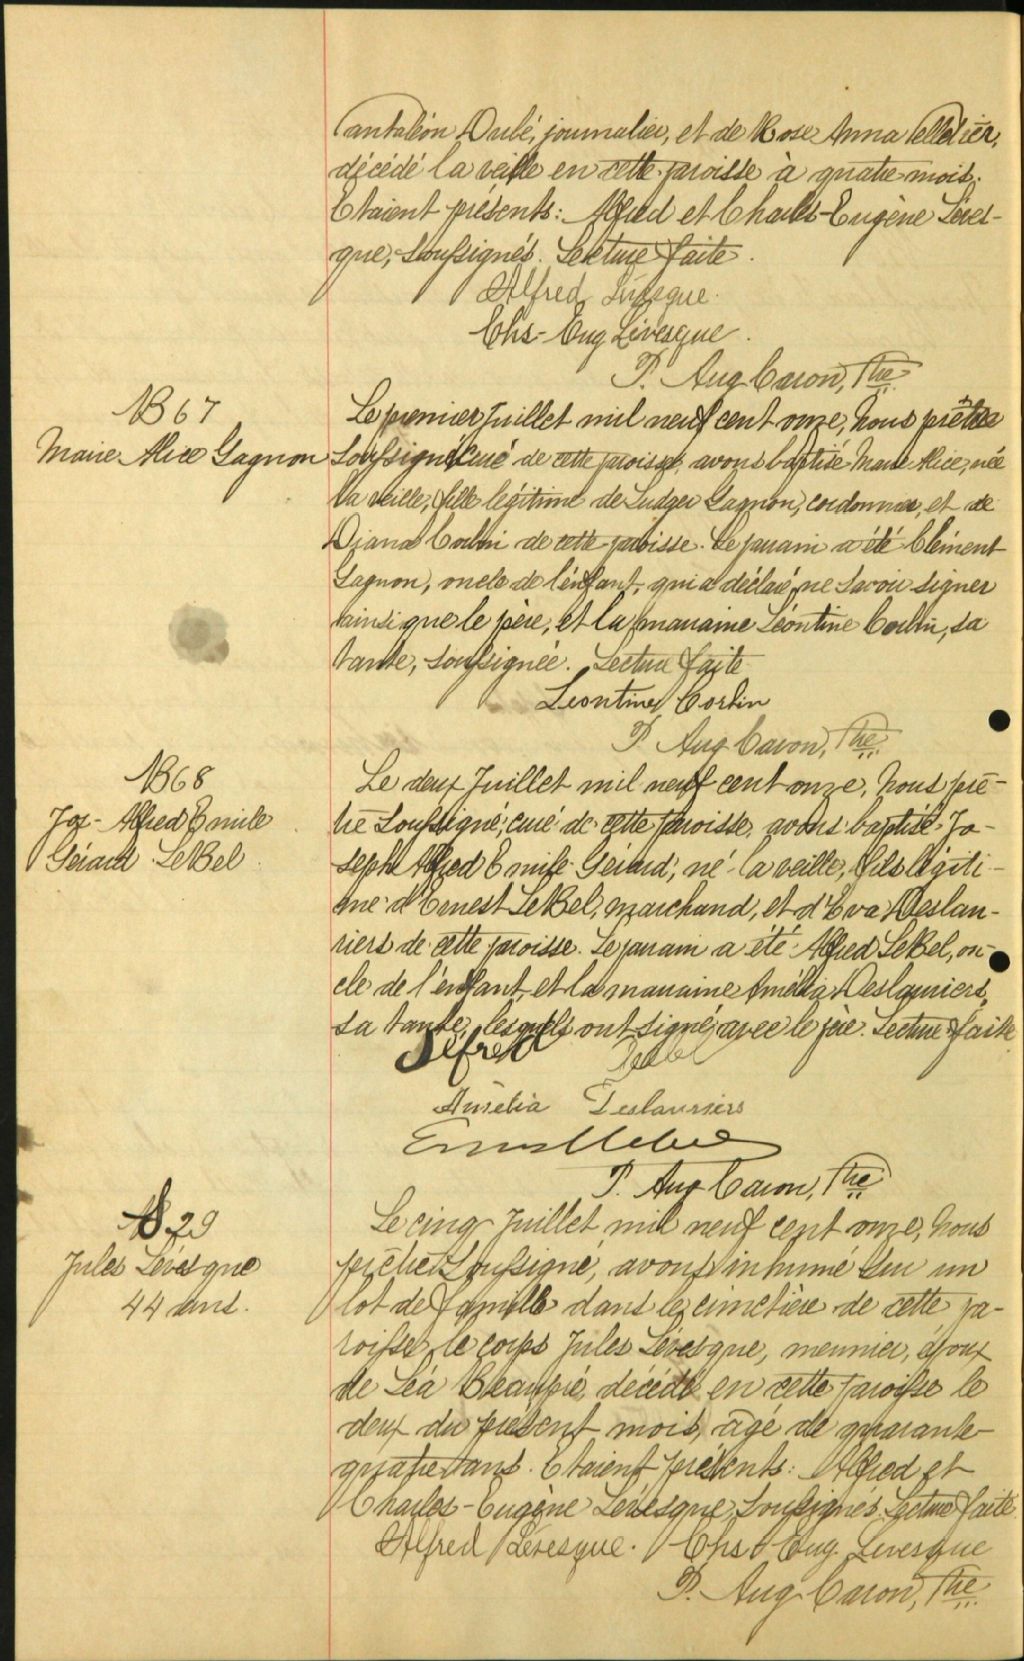 Pantaléon Dubé, journalier, et de Rose Anna Pelletier,
décédé la veille en cette paroisse à quatre mois.
Etaient présents: Alfred et Charles-Eugène Léves-
que, soussignés. Lecture faite.
Alfred Lévesque.
Chs-Eug Lévesque.
P. Aug Caron, Ptre
B 67
Marie Alice Gagnon
Le premier Juillet mil neuf cent onze, Nous prêtre
soussigné curé de cette paroisse, avons baptisé Marie Alice, née
la veille, fille légitime de Ludger Gagnon, cordonnier, et de
Diana Corbin de cette paroisse. Le parrain a été Clément
Gagnon, oncle de l'enfant, qui a déclaré ne savoir signer
ainsi que le père, et la marraine Léontine Corbin, sa
tante, soussignée. Lecture faite
Leontine Corbin
P Aug Caron, Ptre
B 68
Jos-Alfred Emile
Gérard LeBel
Le deux Juillet mil neuf cent onze, Nous prê-
tre soussigné, curé de cette paroisse, avons baptisé Jo-
seph Alfred Emile Gérard, né la veille, fils légiti-
me d'Ernest LeBel, marchand, et d'Eva Deslau-
riers de cette paroisse. Le parrain a été Alfred LeBel, on-
cle de l'enfant, et la marraine Amélia Deslauriers,
sa tante, lesquels ont signé avec le père. Lecture faite
Alfred Lebel
Amélia Deslauriers
Ernest Lebel
P. Aug Caron, Ptre
S 29
Jules Lévesque
44 ans.
Le cinq Juillet mil neuf cent onze, Nous
prêtre soussigné, avons inhumé sur un
lot de famille dans le cimetière de cette pa-
roisse, le corps Jules Lévesque, meunier, époux
de Léa Beaupré, décédé en cette paroisse le
deux du présent mois, âgé de quarante-
quatre ans. Etaient présents: Alfred et
Charles-Eugène Lévesque, soussignés. Lecture faite.
Alfred Lévesque. Chs Eug. Levesque
P. Aug Caron, Ptre